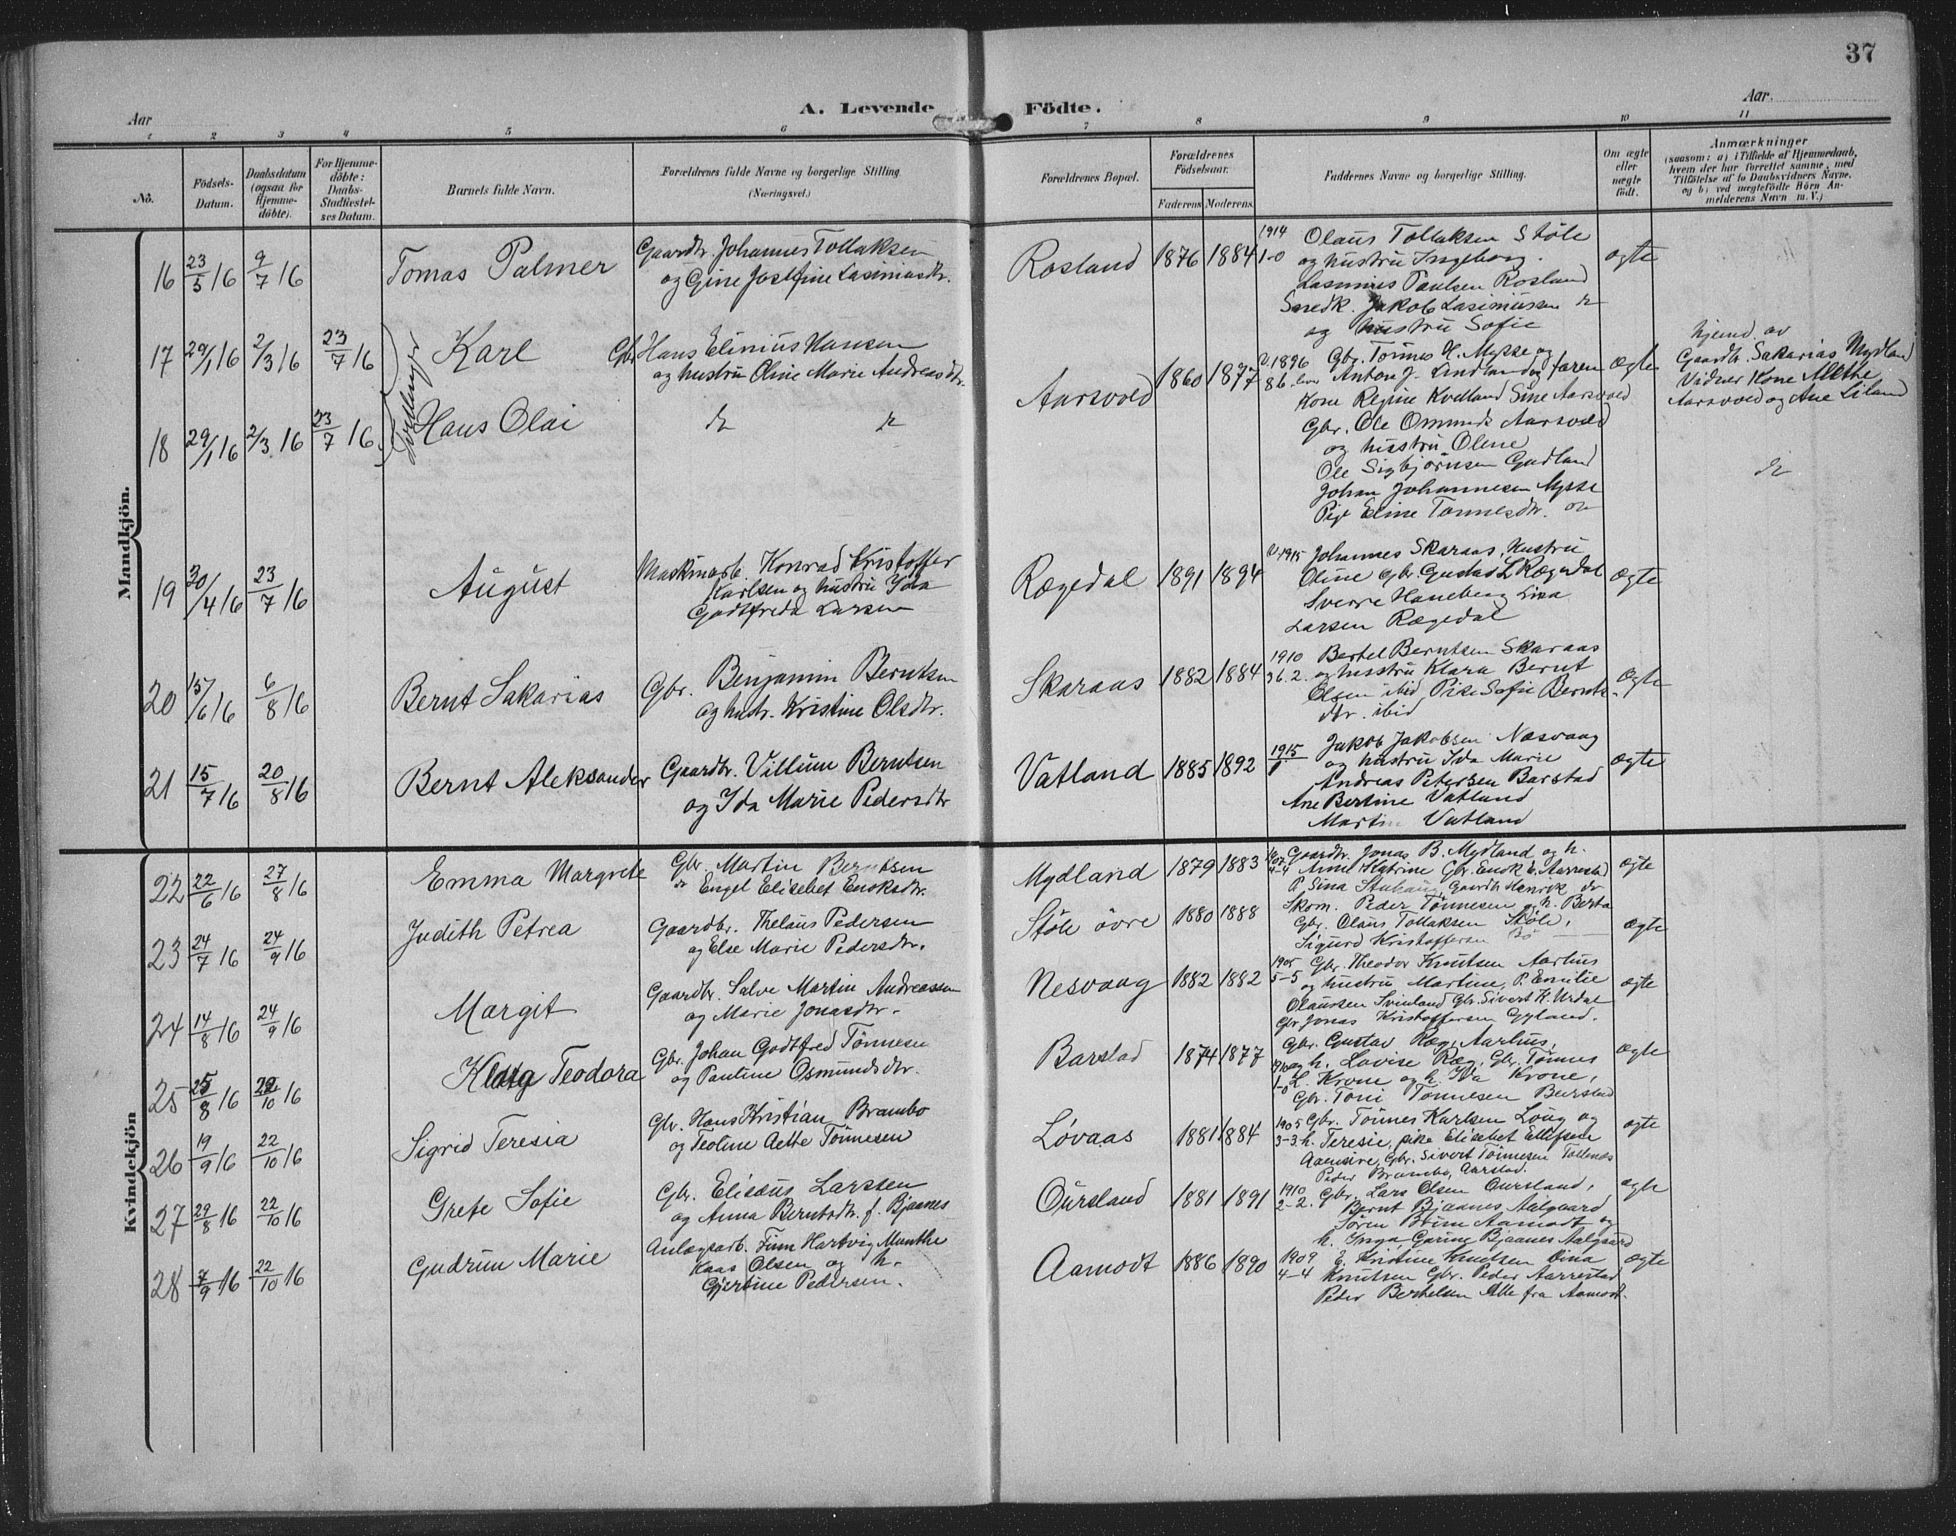 37
A. Levende Födte.
Aar
Aar.
1 2 3 4 5 6 7 8 9 10 11
No.
Födsels-Datum.
Daabsdatum (ogsaa for Hjemmedöbte).
For Hjemmedöbte: Daabs-Stadfæstelses Datum.
Barnets fulde Navn.
Forældrenes fulde Navne og borgerlige Stilling. (Næringsvei.)
Forældrenes Bopæl.
Forældrenes Födselsaar.
Faderens. Moderens.
Faddernes Navne og borgerlige Stilling.
Om ægte eller uægte födt.
Anmærkninger
(saasom: a) i Tilfælde af Hjemmedaab, hvem der har forrettet samme, med Tilföielse af to Daabsvidners Navne, og b) ved uægtefödte Börn Anmelderens Navn m. V.)
Mandkjön.
16 23/5 16 9/7 16 Tomas Palmer
Gaardbr. Johannes Tollaksen
og Gine Jostfine Lasimusdtr.
Rosland 1876 1884 1914 1-0
Olaus Tollaksen Støle
og hustru Ingeborg.
Paulsen Rosland
Snedk. Jakob Lasimusen
og hustru Sofie
ægte
17 29/1 16 2/3 16 23/7 16 Karl
Tvillinger
Gbr. Hans Elinius Hansen
og hustru Oline Marie Andreasdtr.
Aarsvold 1860 1877 1896
Gbr. Tönnes H. Mysse og
Anton J. Lindland og faren
Kone Regine Kvelland Sine Aarsvold
ægte
hjemd. av
Gaardbr. Sakarias Mydland
Vidner Kone Alethe
Aarsvold og Ane Liland
18 29/1 16 2/3 16 23/7 16 Hans Olai
Gbr. Ole Omund Aarsvold
og hustru Olene
Ole Sigbjörnsen Gudland
Johan Johannesen Mysse
Pige Eline Tönnesdtr.
19 30/4 16 23/7 16 August
Maskinarb. Konrad Kristoffer
Karlsen og hustru Ida
Godtfreda Larsen
Rægedal 1891 1894 1915
Johannes Skaraas, Hustru
Oline Gbr. Gustad L Rægedal
Sverre Haneberg Lisa
Larsen Rægedal
ægte
20 15/6 16 6/8 16 Bernt Sakarias
Gbr. Benjamin Berntsen
og hustr. Kristine Olsdtr.
Skaraas 1882 1884 1910
Bertel Berntsen Skaraas
og hustru Klara Bernt
Olsen ibid Pike Sofie Bernts-
dtr. ibid
ægte
21 15/7 16 20/8 16 Bernt Aleksander
Gaardbr. Villum Berntsen
og Ida Marie Pedersdtr
Vatland 1885 1892 1915
Jakob Jakobsen Nesvaag
og hustru Ida Marie
Andreas Petersen Barstad
Ane Bertine Vatland
Martin Vatland
ægte
Kvindekjön
22 22/6 16 27/8 16 Emma Margrete
Gbr Martin Berntsen
Engel Elisebet Enoksdtr.
Mydland 1879 1883
Gaardbr. Jonas B. Mydland og h.
Anne Katrine Gbr. Enok E. Aarrestad
P. Sina Gaardb Henrik
ægte
23 24/7 16 24/9 16 Judith Petrea
Gaardbr. Thelaus Pedersen
og Else Marie Pedersdtr.
Støle övre 1880 1888
Skom. Peder Tönnesen og h. Berta
Gbr. Olaus Tollaksen Støle,
Sigurd Kristoffersen Bö
ægte
24 14/8 16 24/9 16 Margit
Gaardbr. Salve Martin Andreassen
og Marie Jonasdtr.
Nesvaag 1882 1882 1905 5-5
Gbr. Theodor Knutsen Aarhus
og hustru Martine, P. Emilie
Olaussen Svinland Gbr. Sivert K. Urdal
Gbr. Jonas Kristoffersen Gyland.
ægte
25 25/8 16 22/10 16 Teodora
Gbr. Johan Godtfred Tönnesen
og Pauline Osmundsdtr.
Barstad 1874 1877
Gbr. Gustav Ræg, Aarhus,
h. Lovise Ræg, Gbr. Tönnes
L. Krone og h. Ida Krone,
Gbr. Toni Tönnesen Barstad
ægte
26 19/9 16 22/10 16 Sigrid Teresia
Gbr. Hans Kristian Brambo
og Teoline Aette Tönnesen
Lövaas 1881 1884 1905 3-3
Gbr. Tönnes Karlsen Long og
h. Teresie, pike Elisebet Ellefsen
Aaensire, Gbr. Sivert Tönnesen Tollenæs
Peder Brambo, Aarstad.
ægte
27 29/8 16 22/10 16 Grete Sofie
Gbr. Eliseus Larsen
og Anna Berntsdtr. f. Bjaanes
Oursland 1881 1891 1910 2-2.
Gbr. Lars Olsen Oursland,
Bernt Bjaanes Aalgaard
Sören Böim Aamodt og
h. Inga Garine Bjaanes Aalgaard
ægte
28 7/9 16 22/10 16 Gudrun Marie
Anlægsarb. Finn Hartvig Munthe
Kaas Olsen og h.
Gjertine Pedersen.
Aamodt 1886 1890 1909 4-4
E. Kristine Knutsen Dina
Knutsen Gbr. Peder Aarrestad
Peder Berthelsen Alle fra Aamodt.
ægte